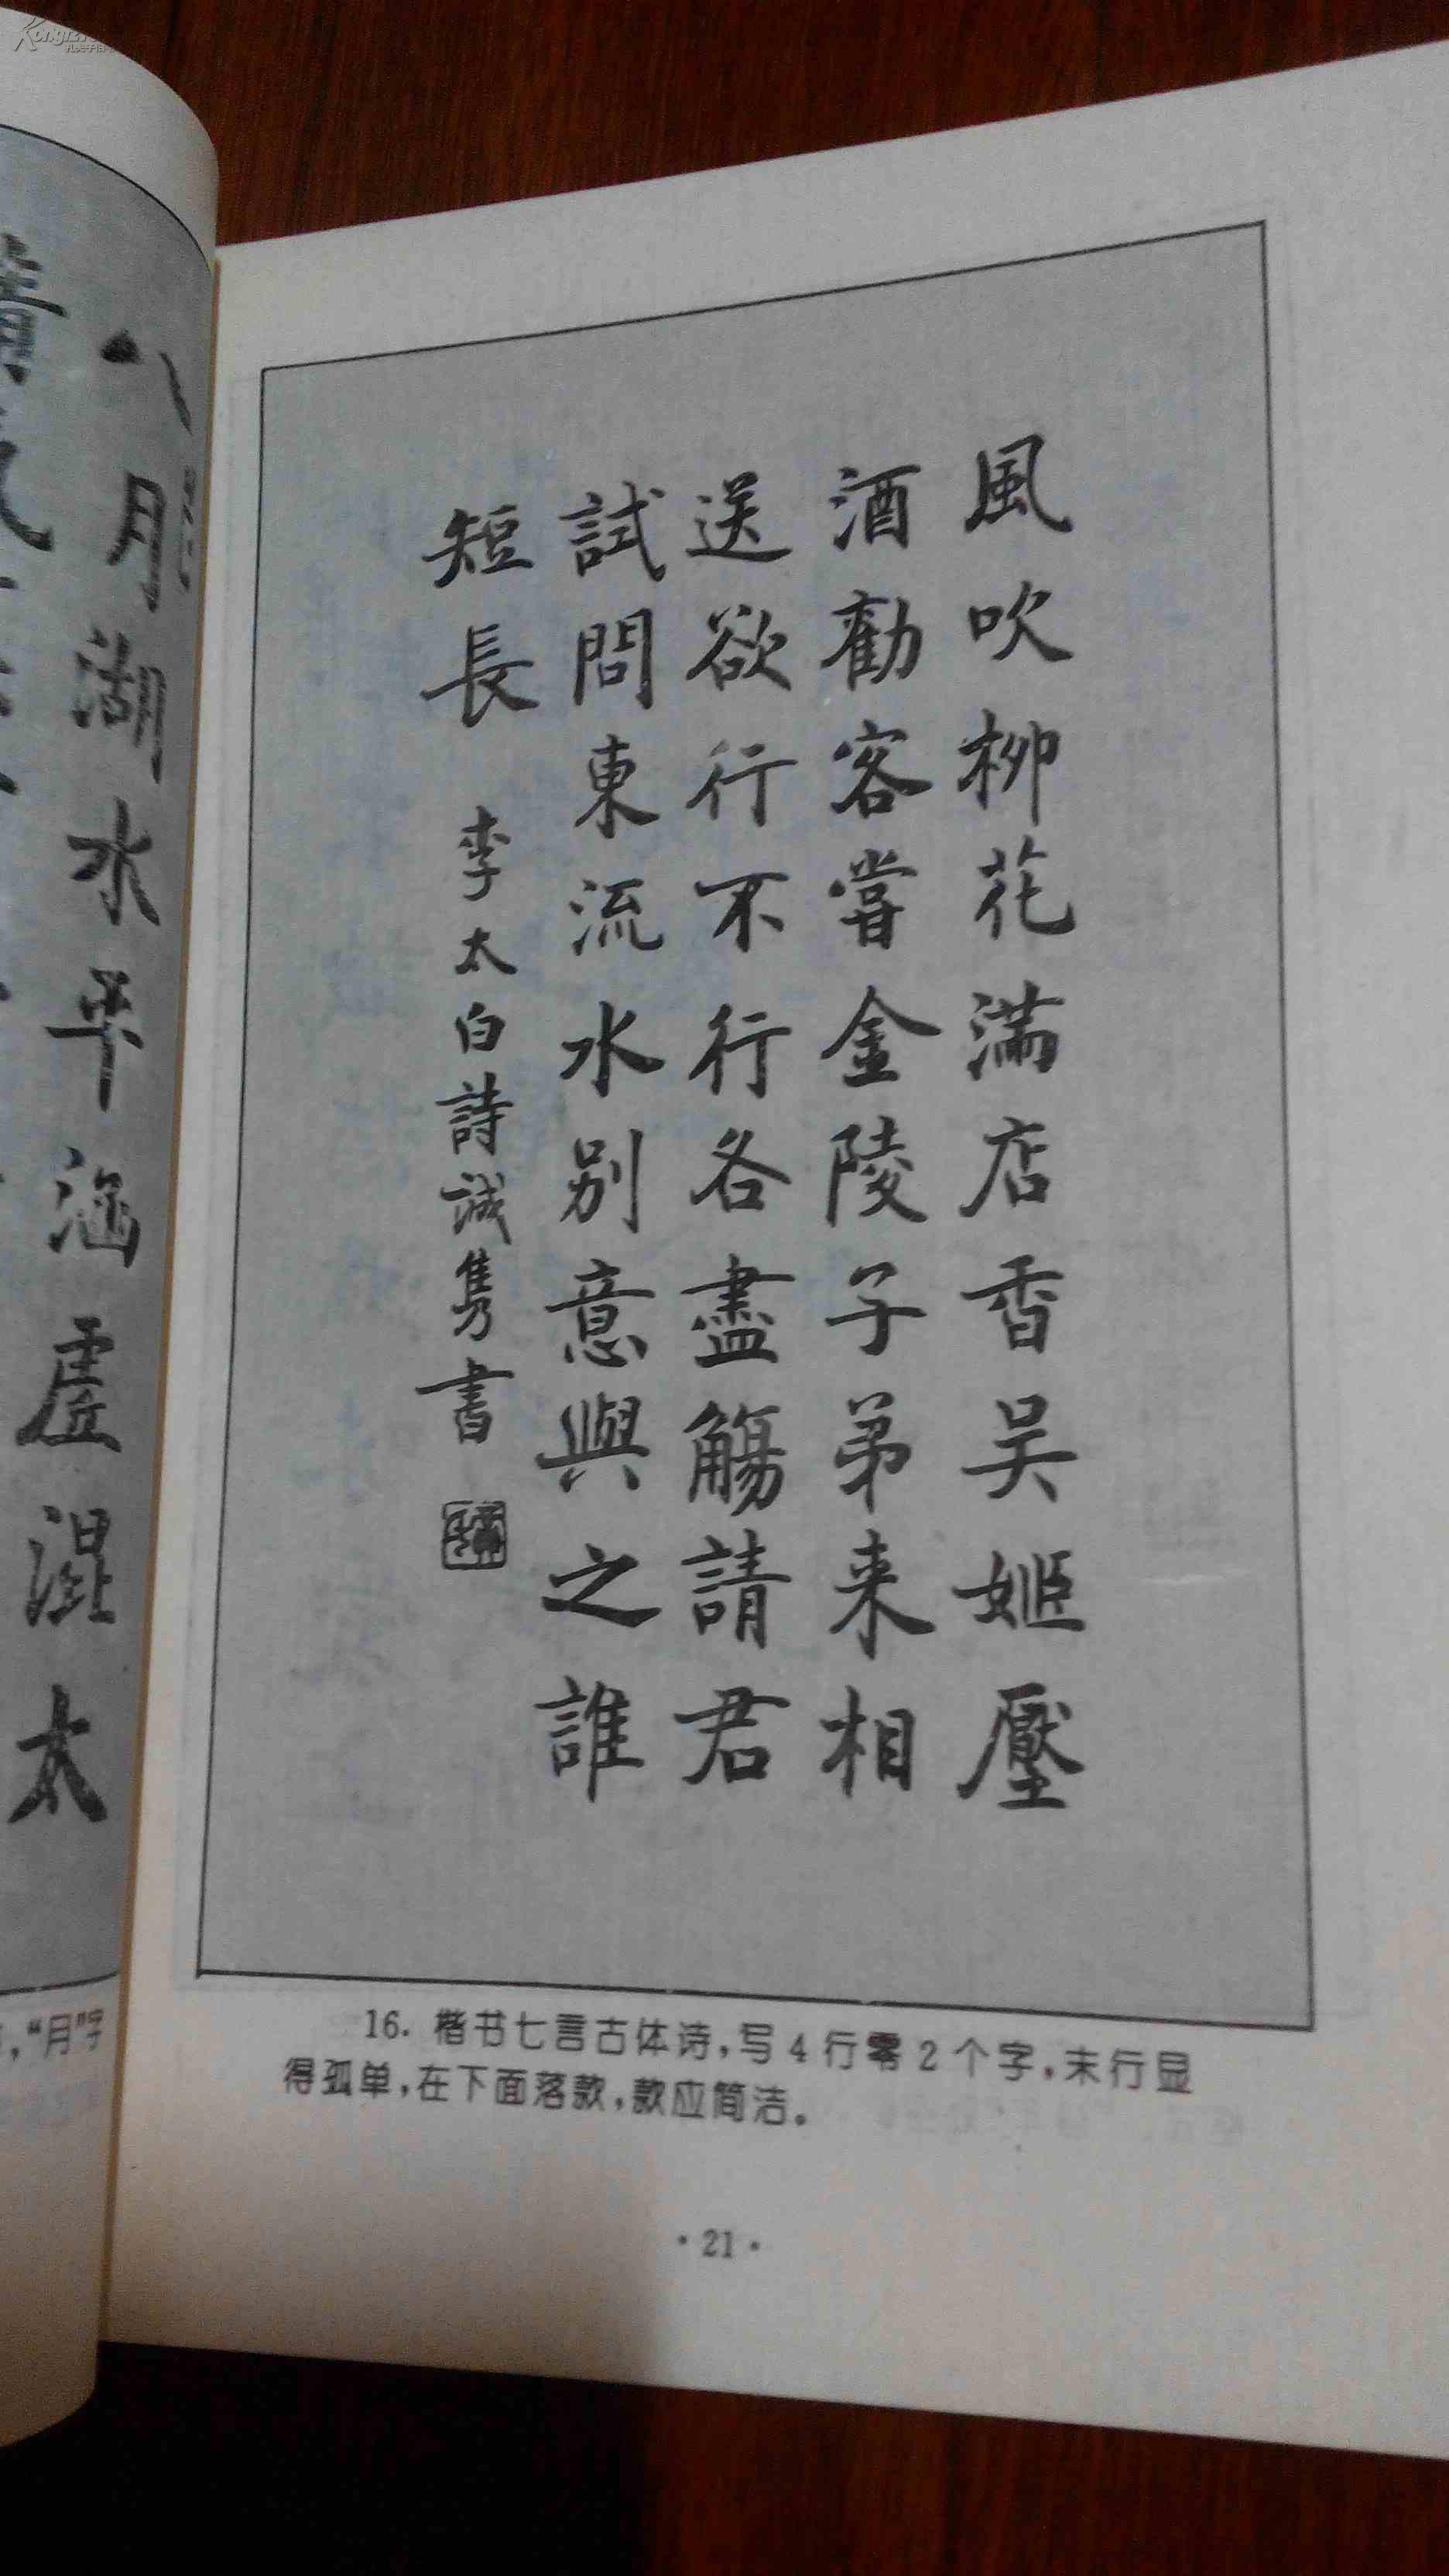 風吹柳花滿店香吴姬壓
酒勸客嘗金陵子弟来相
送欲行不行各盡觴請君
試問東流水别意與之誰
短長 李太白詩誠隽書
16. 楷书七言古体诗,写4行零2个字,末行显
得孤单,在下面落款,款应简洁。
·21·
八月湖水平涵虚混太
清氣
,“月”字